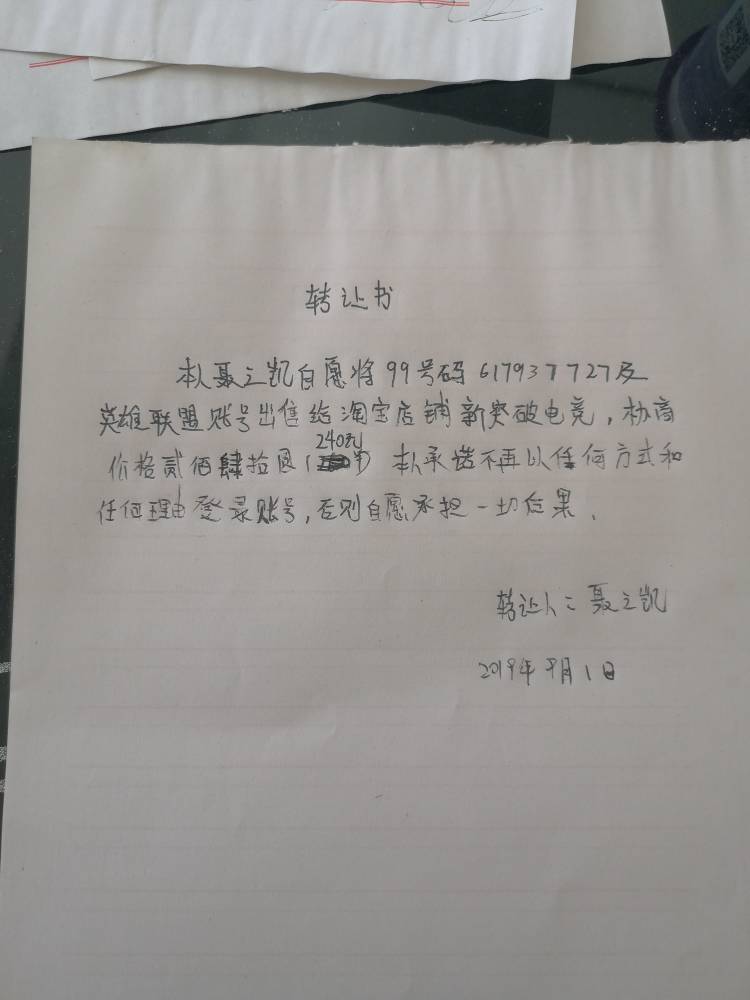 转让书
本人聂之凯自愿将99号码617937727及
英雄联盟账号出售给淘宝店铺新突破电竞,协商
240元
价格贰佰肆拾圆( ) 本人承诺不再以任何方式和
任何理由登录账号,否则自愿承担一切后果、
转让人:聂之凯
2019年9月1日